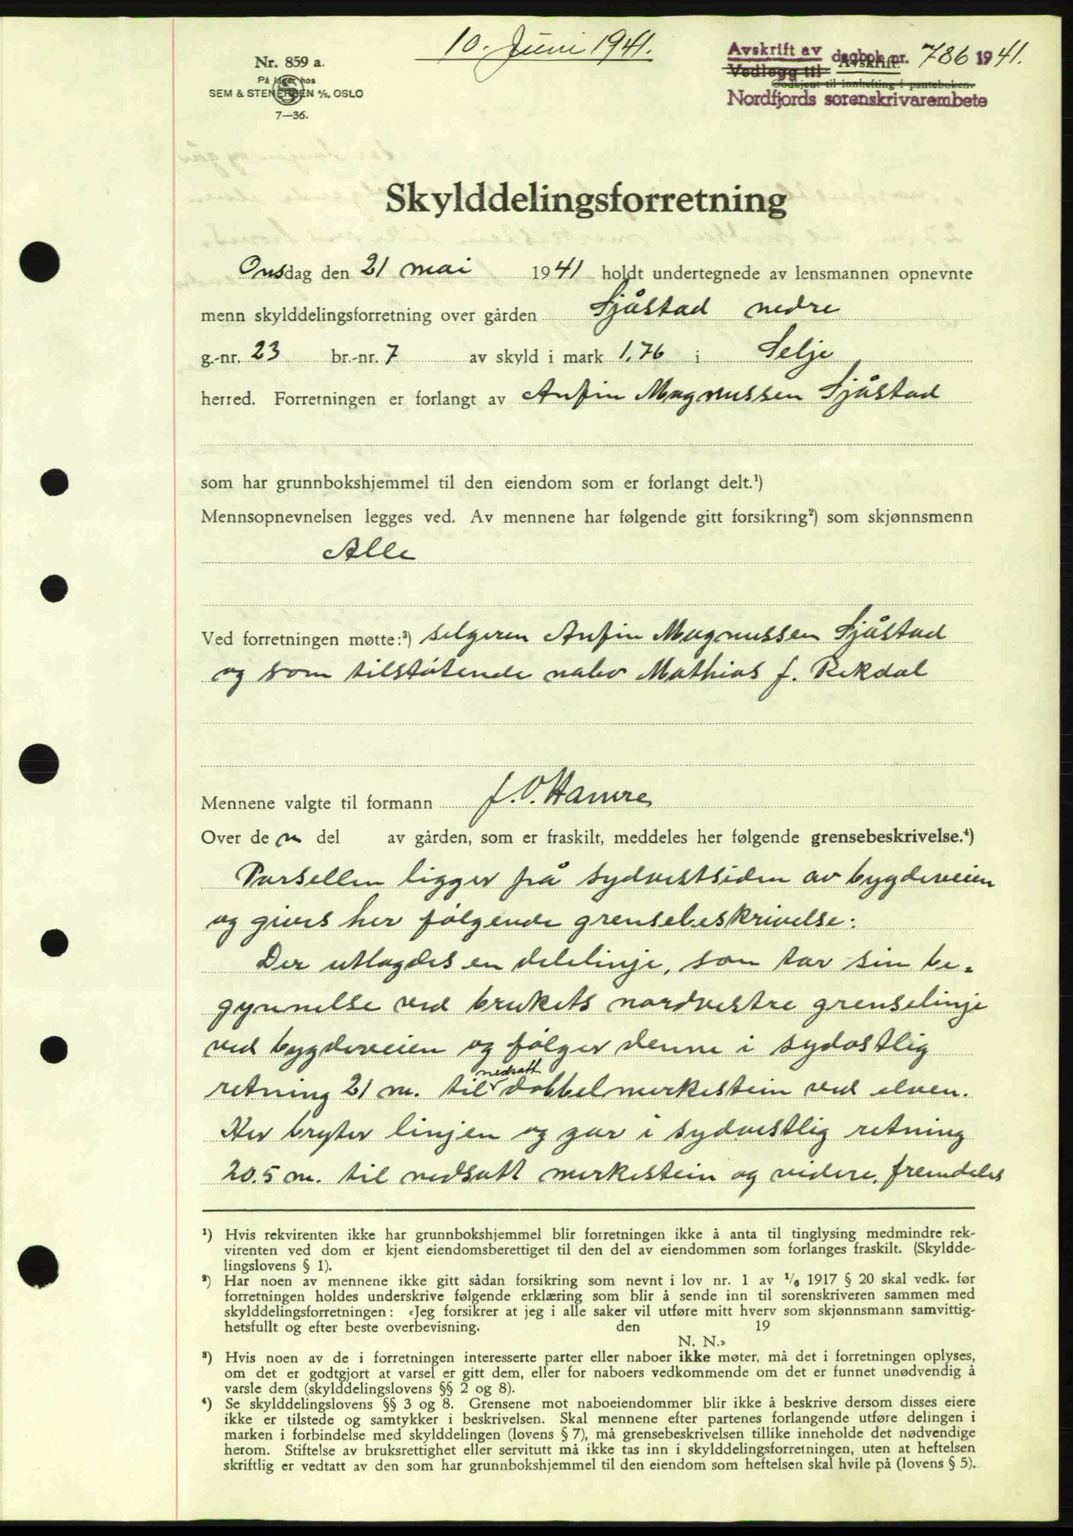 10. Juni 1941.
Nr. 859 a.
På lager hos
SEM & STENERSEN A/S, OSLO
7—36.
Avskrift av dagbok nr. 786 1941.
Vedlegg til Avskrift.
Godkjent til innhefting i panteboken.
Nordfjords sorenskrivarembete
Skylddelingsforretning
Onsdag den 21 mai 1941 holdt undertegnede av lensmannen opnevnte
menn skylddelingsforretning over gården Sjåstad nedre
g.-nr. 23 br.-nr. 7 av skyld i mark 1,76 i Selje
herred. Forretningen er forlangt av Anfin Magnussen Sjåstad
som har grunnbokshjemmel til den eiendom som er forlangt delt.¹)
Mennsopnevnelsen legges ved. Av mennene har følgende gitt forsikring²) som skjønnsmenn
Alle
Ved forretningen møtte:³) selgeren Anfin Magnussen Sjåstad
og som tilstøtende nabo Mathias J. Rekdal
Mennene valgte til formann J. O. Hamre
Over den del av gården, som er fraskilt, meddeles her følgende grensebeskrivelse.⁴)
Parsellen ligger på sydvestsiden av bygdeveien
og gives her følgende grensebeskrivelse:
Der utlagdes en delelinje, som tar sin be-
gynnelse ved brukets nordvestre grenselinje
ved bygdeveien og følger denne i sydøstlig
retning 21 m. til nedsatt dobbelmerkestein ved elven.
Her bryter linjen og går i sydvestlig retning
20.5 m. til nedsatt merkestein og videre, fremdeles
¹) Hvis rekvirenten ikke har grunnbokshjemmel blir forretningen ikke å anta til tinglysing medmindre rek-
virenten ved dom er kjent eiendomsberettiget til den del av eiendommen som forlanges fraskilt. (Skyldde-
lingslovens § 1).
²) Har noen av mennene ikke gitt sådan forsikring som nevnt i lov nr. 1 av 1/6 1917 § 20 skal vedk. før
forretningen holdes underskrive følgende erklæring som blir å sende inn til sorenskriveren sammen med
skylddelingsforretningen: «Jeg forsikrer at jeg i alle saker vil utføre mitt hverv som skjønnsmann samvittig-
hetsfullt og efter beste overbevisning. den 19
N. N.»
³) Hvis noen av de i forretningen interesserte parter eller naboer ikke møter, må det i forretningen oplyses,
om det er godtgjort at varsel er gitt dem, eller for naboers vedkommende om det er funnet unødvendig å
varsle dem (skylddelingslovens §§ 2 og 8).
⁴) Se skylddelingslovens §§ 3 og 8. Grensene mot naboeiendommer blir ikke å beskrive dersom disses eiere
ikke er tilstede og samtykker i beskrivelsen. Skal mennene efter partenes forlangende utføre delingen i
marken i forbindelse med skylddelingen (lovens § 7), må grensebeskrivelsen tillike inneholde det nødvendige
herom. Stiftelse av bruksrettighet eller servitutt må ikke tas inn i skylddelingsforretningen, uten at heftelsen
skriftlig er vedtatt av den som har grunnbokshjemmel til den eiendom som heftelsen skal hvile på (lovens § 5).